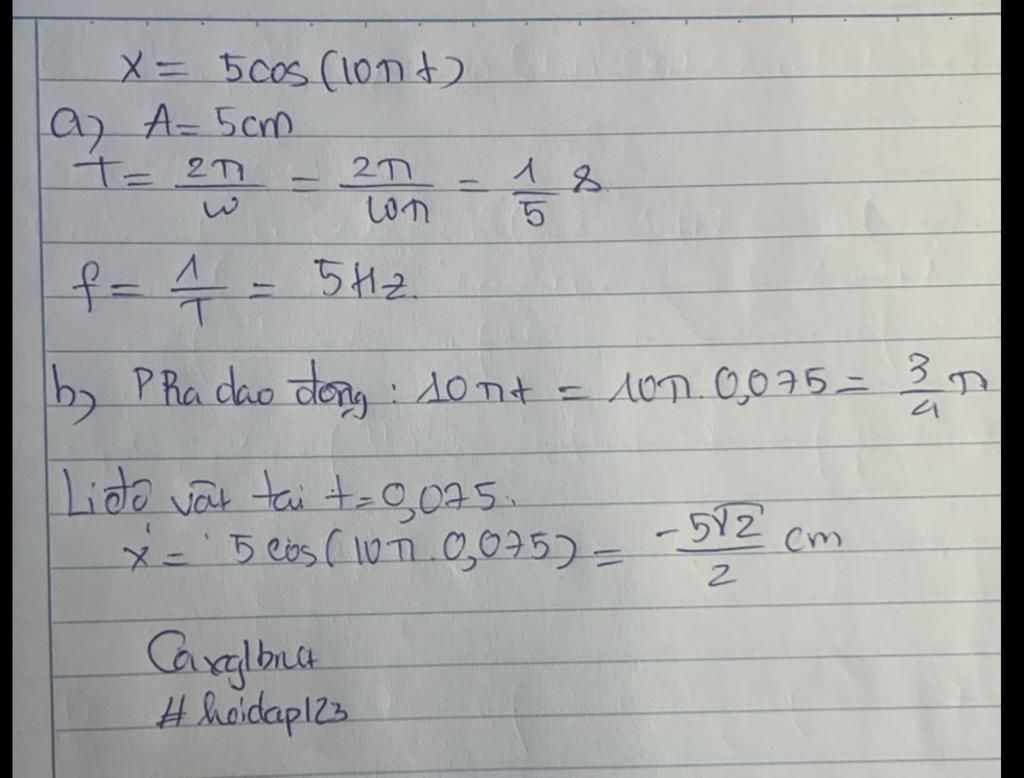 x = 5cos(10πt)
a) A = 5cm
T = 2π/ω = 2π/10π = 1/5 s
f = 1/T = 5Hz.
b) Pha dao động: 10πt = 10π.0,075 = 3/4 π
Li độ vật tại t = 0,075.
x = 5cos(10π.0,075) = -5√2/2 cm
#hoidap123